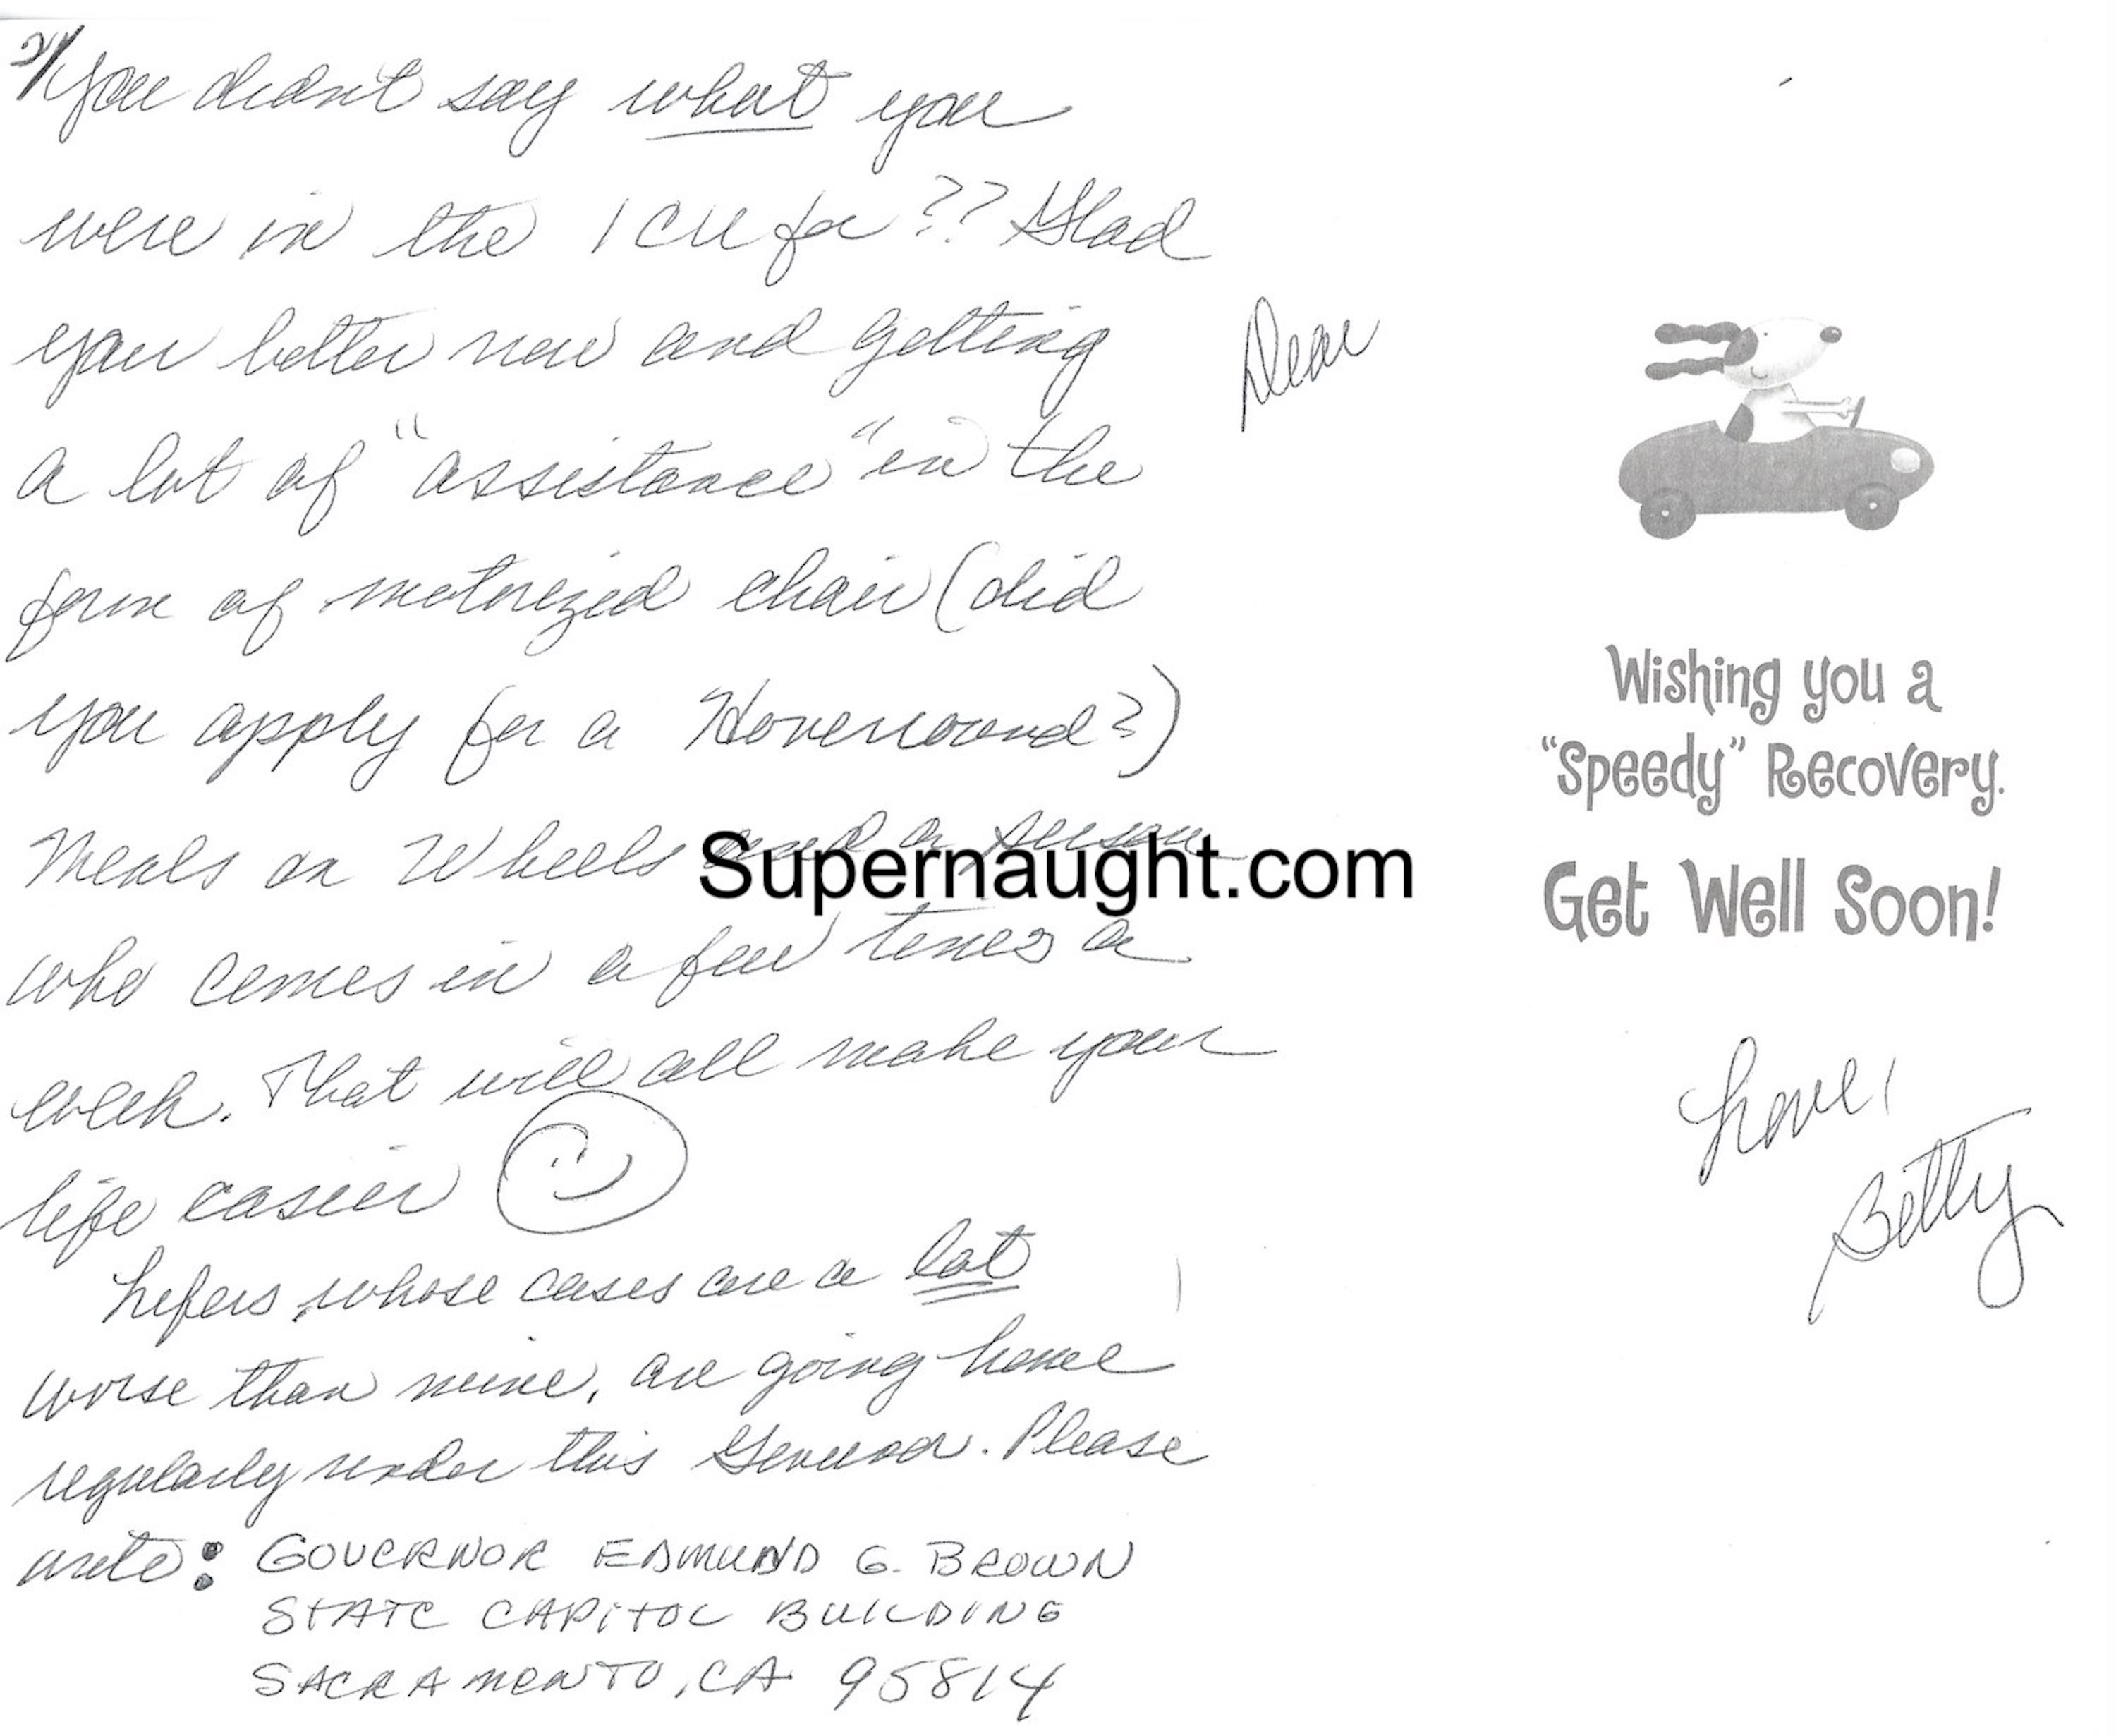 2/ You didn't say what you
were in the ICU for?? Glad
your better now and getting
a lot of "assistance" in the
form of motorized chair (did
you apply for a Hoveround?)
Meals on Wheels and a person
who comes in a few times a
week. That will all make your
life easier
Lifers, whose cases are a lot
worse than mine, are going home
regularly under this Governor. Please
write: GOVERNOR EDMUND G. BROWN
STATE CAPITOL BUILDING
SACRAMENTO, CA 95814
Dear
Wishing you a
"Speedy" Recovery.
Get Well Soon!
Love,
Betty
Supernaught.com